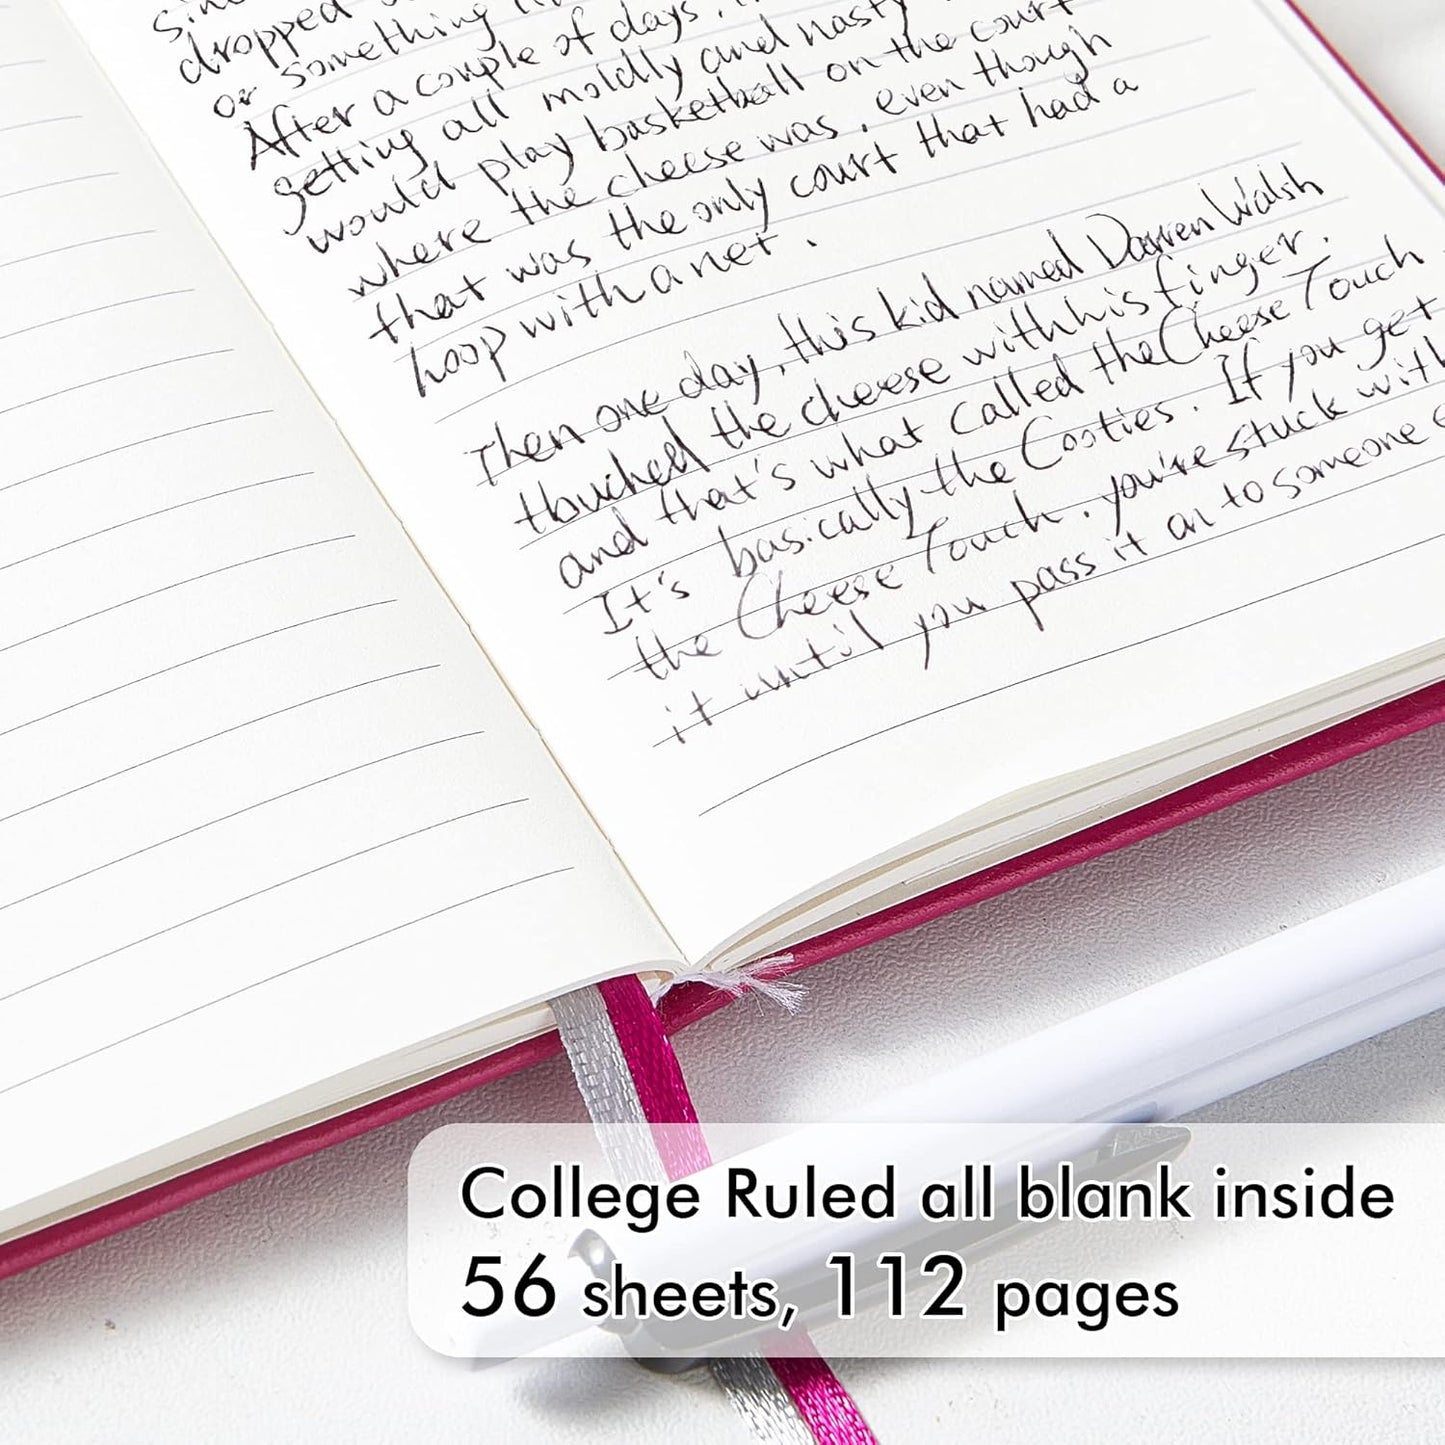 dropped
or something
After a couple of days,
getting all moldly and nasty
would play basketball on the court
where the cheese was, even though
that was the only court that had a
hoop with a net.
Then one day, this kid named Darren Walsh
thouched the cheese with his finger.
and that's what called the Cheese Touch
It's basically the Cooties. If you get
the Cheese Touch, you're stuck with
it until you pass it on to someone
College Ruled all blank inside
56 sheets, 112 pages